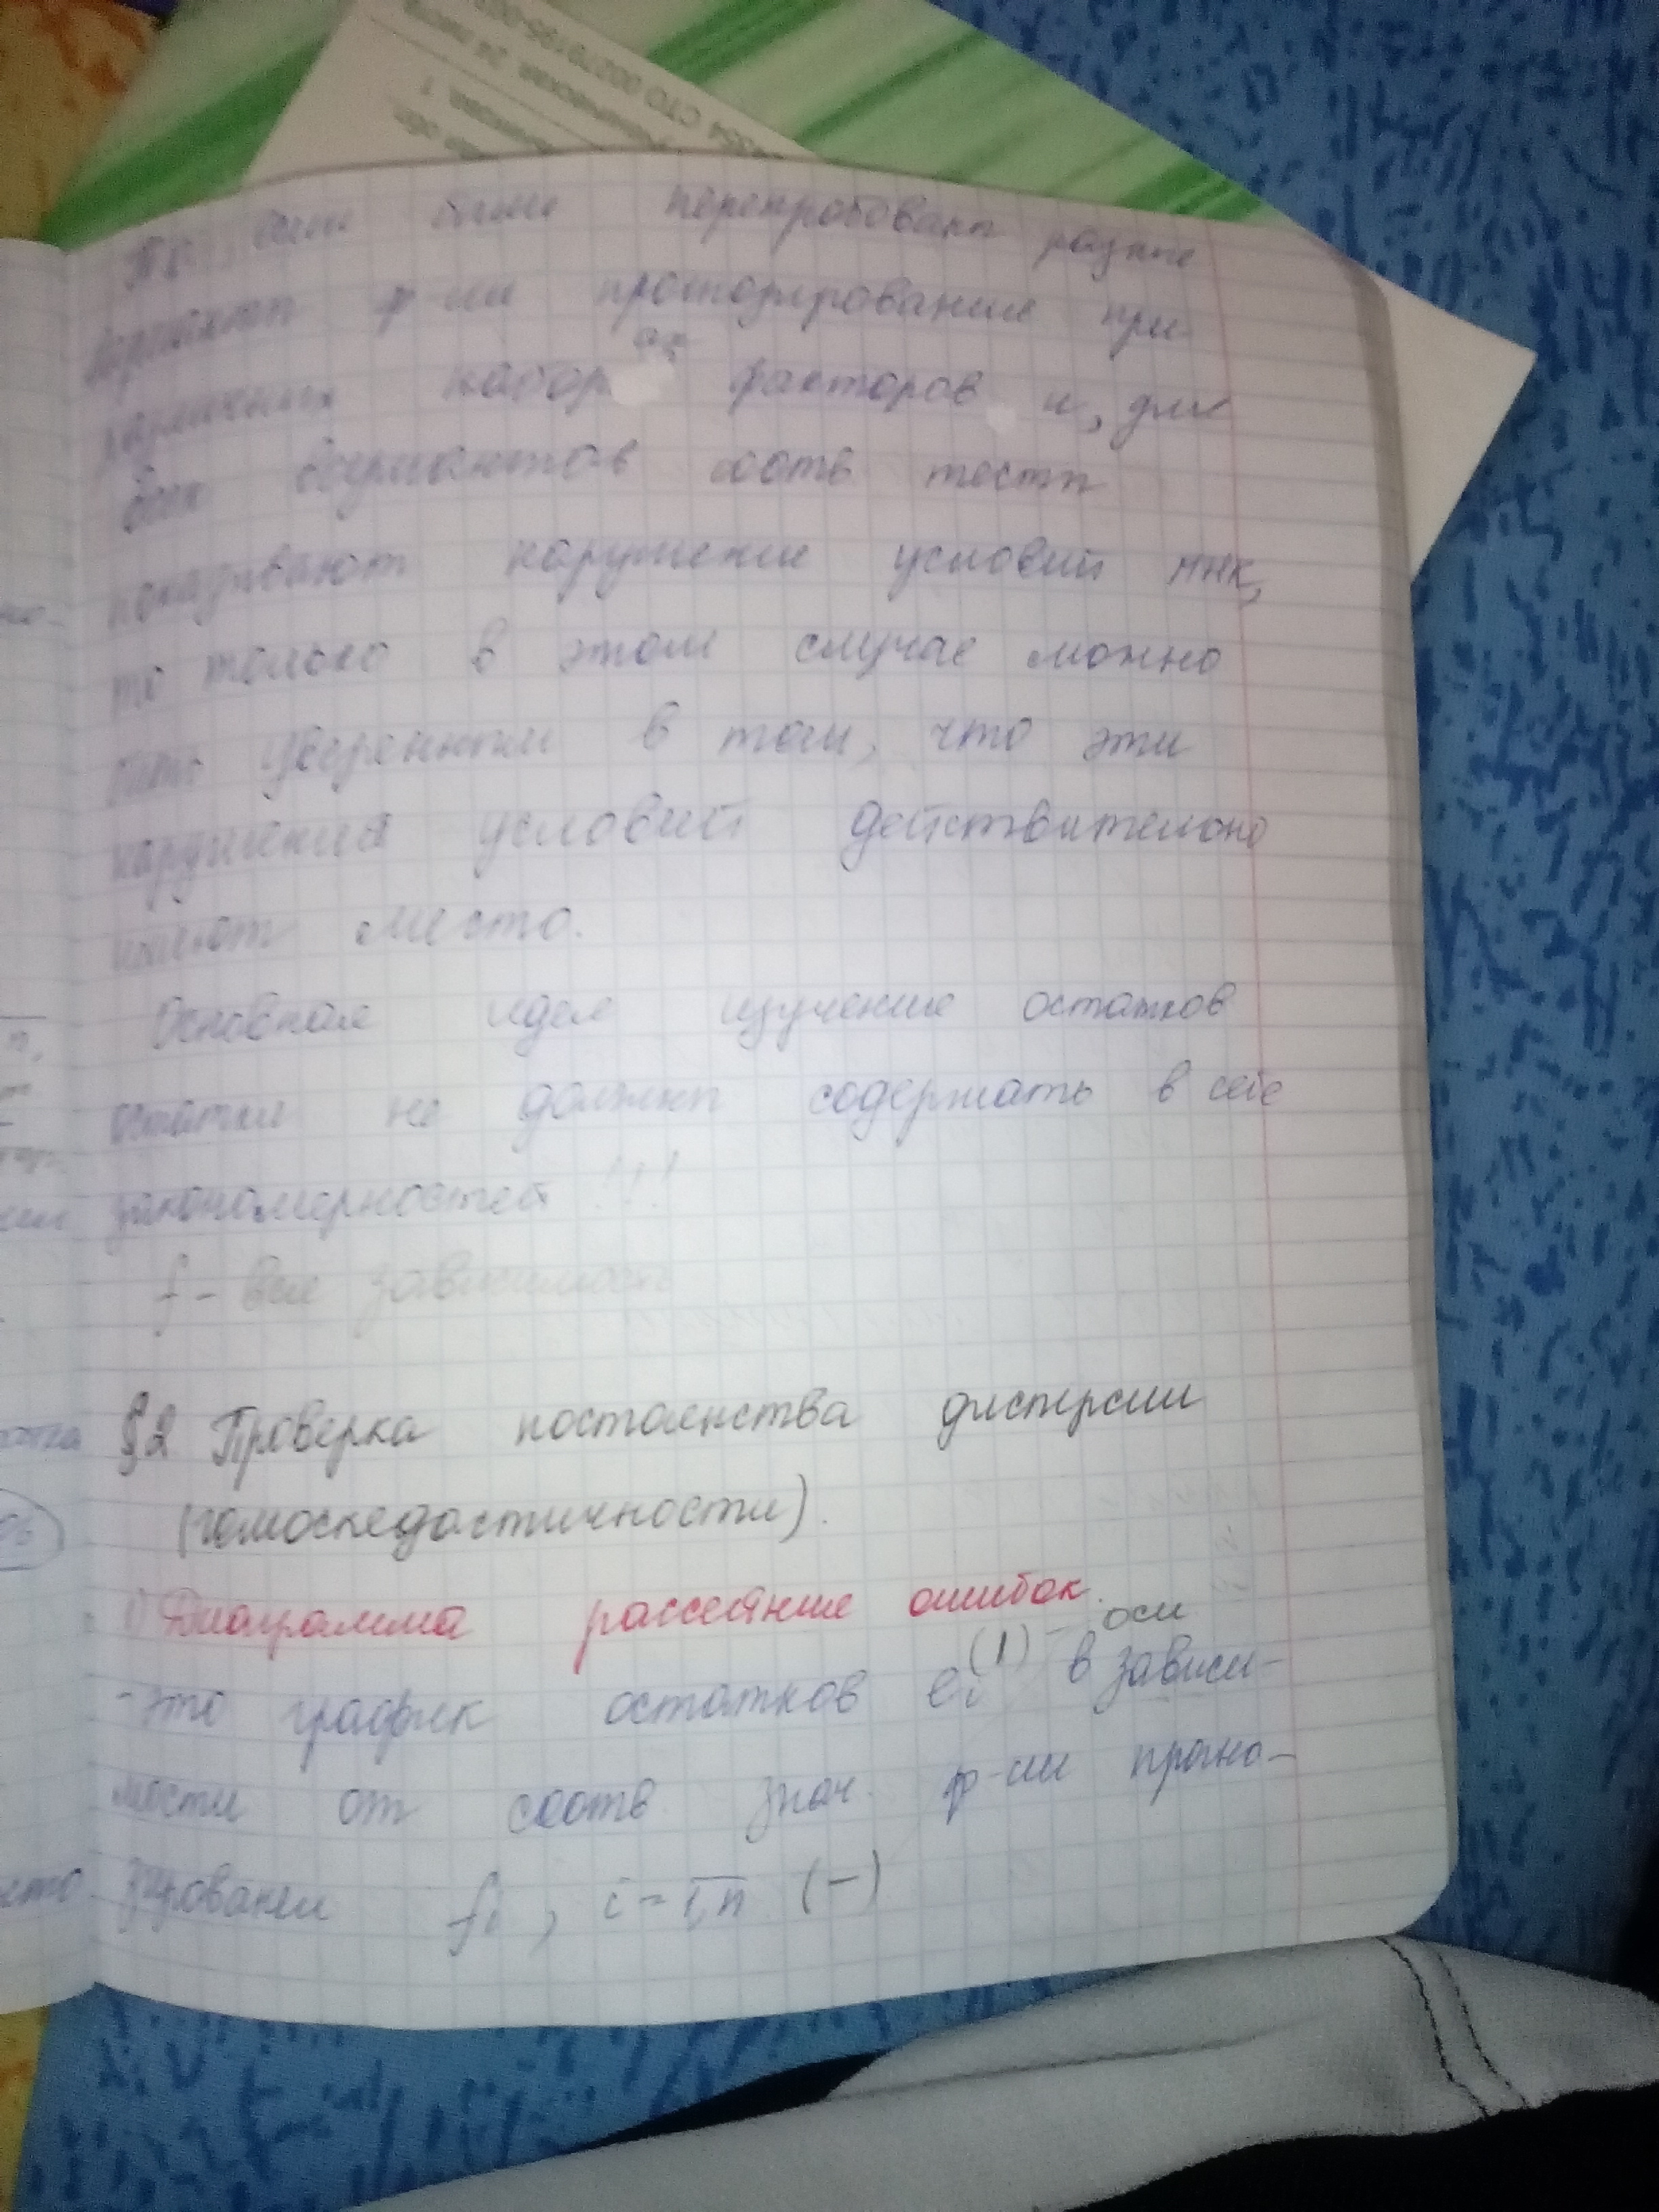 СТО 00279195-00
24 листа
Те если были перепробованы разные
варианты ф-ии прогнозирования при
различных наборах факторов и, для
всех вариантов соотв тесты
показывают нарушение условий МНК,
то только в этом случае можно
быть уверенным в том, что эти
нарушения условий действительно
имеют место.
Основная идея изучение остатков
остатки не должны содержать в себе
закономерностей !!!
f - вся зависимость
§2 Проверка постоянства дисперсии
(гомоскедастичности).
1) Диаграмма рассеяние ошибок.
- это график остатков ei (1) - оси в зависи-
мости от соотв знач. ф-ии прогно-
зирования fi, i = 1,n (-)